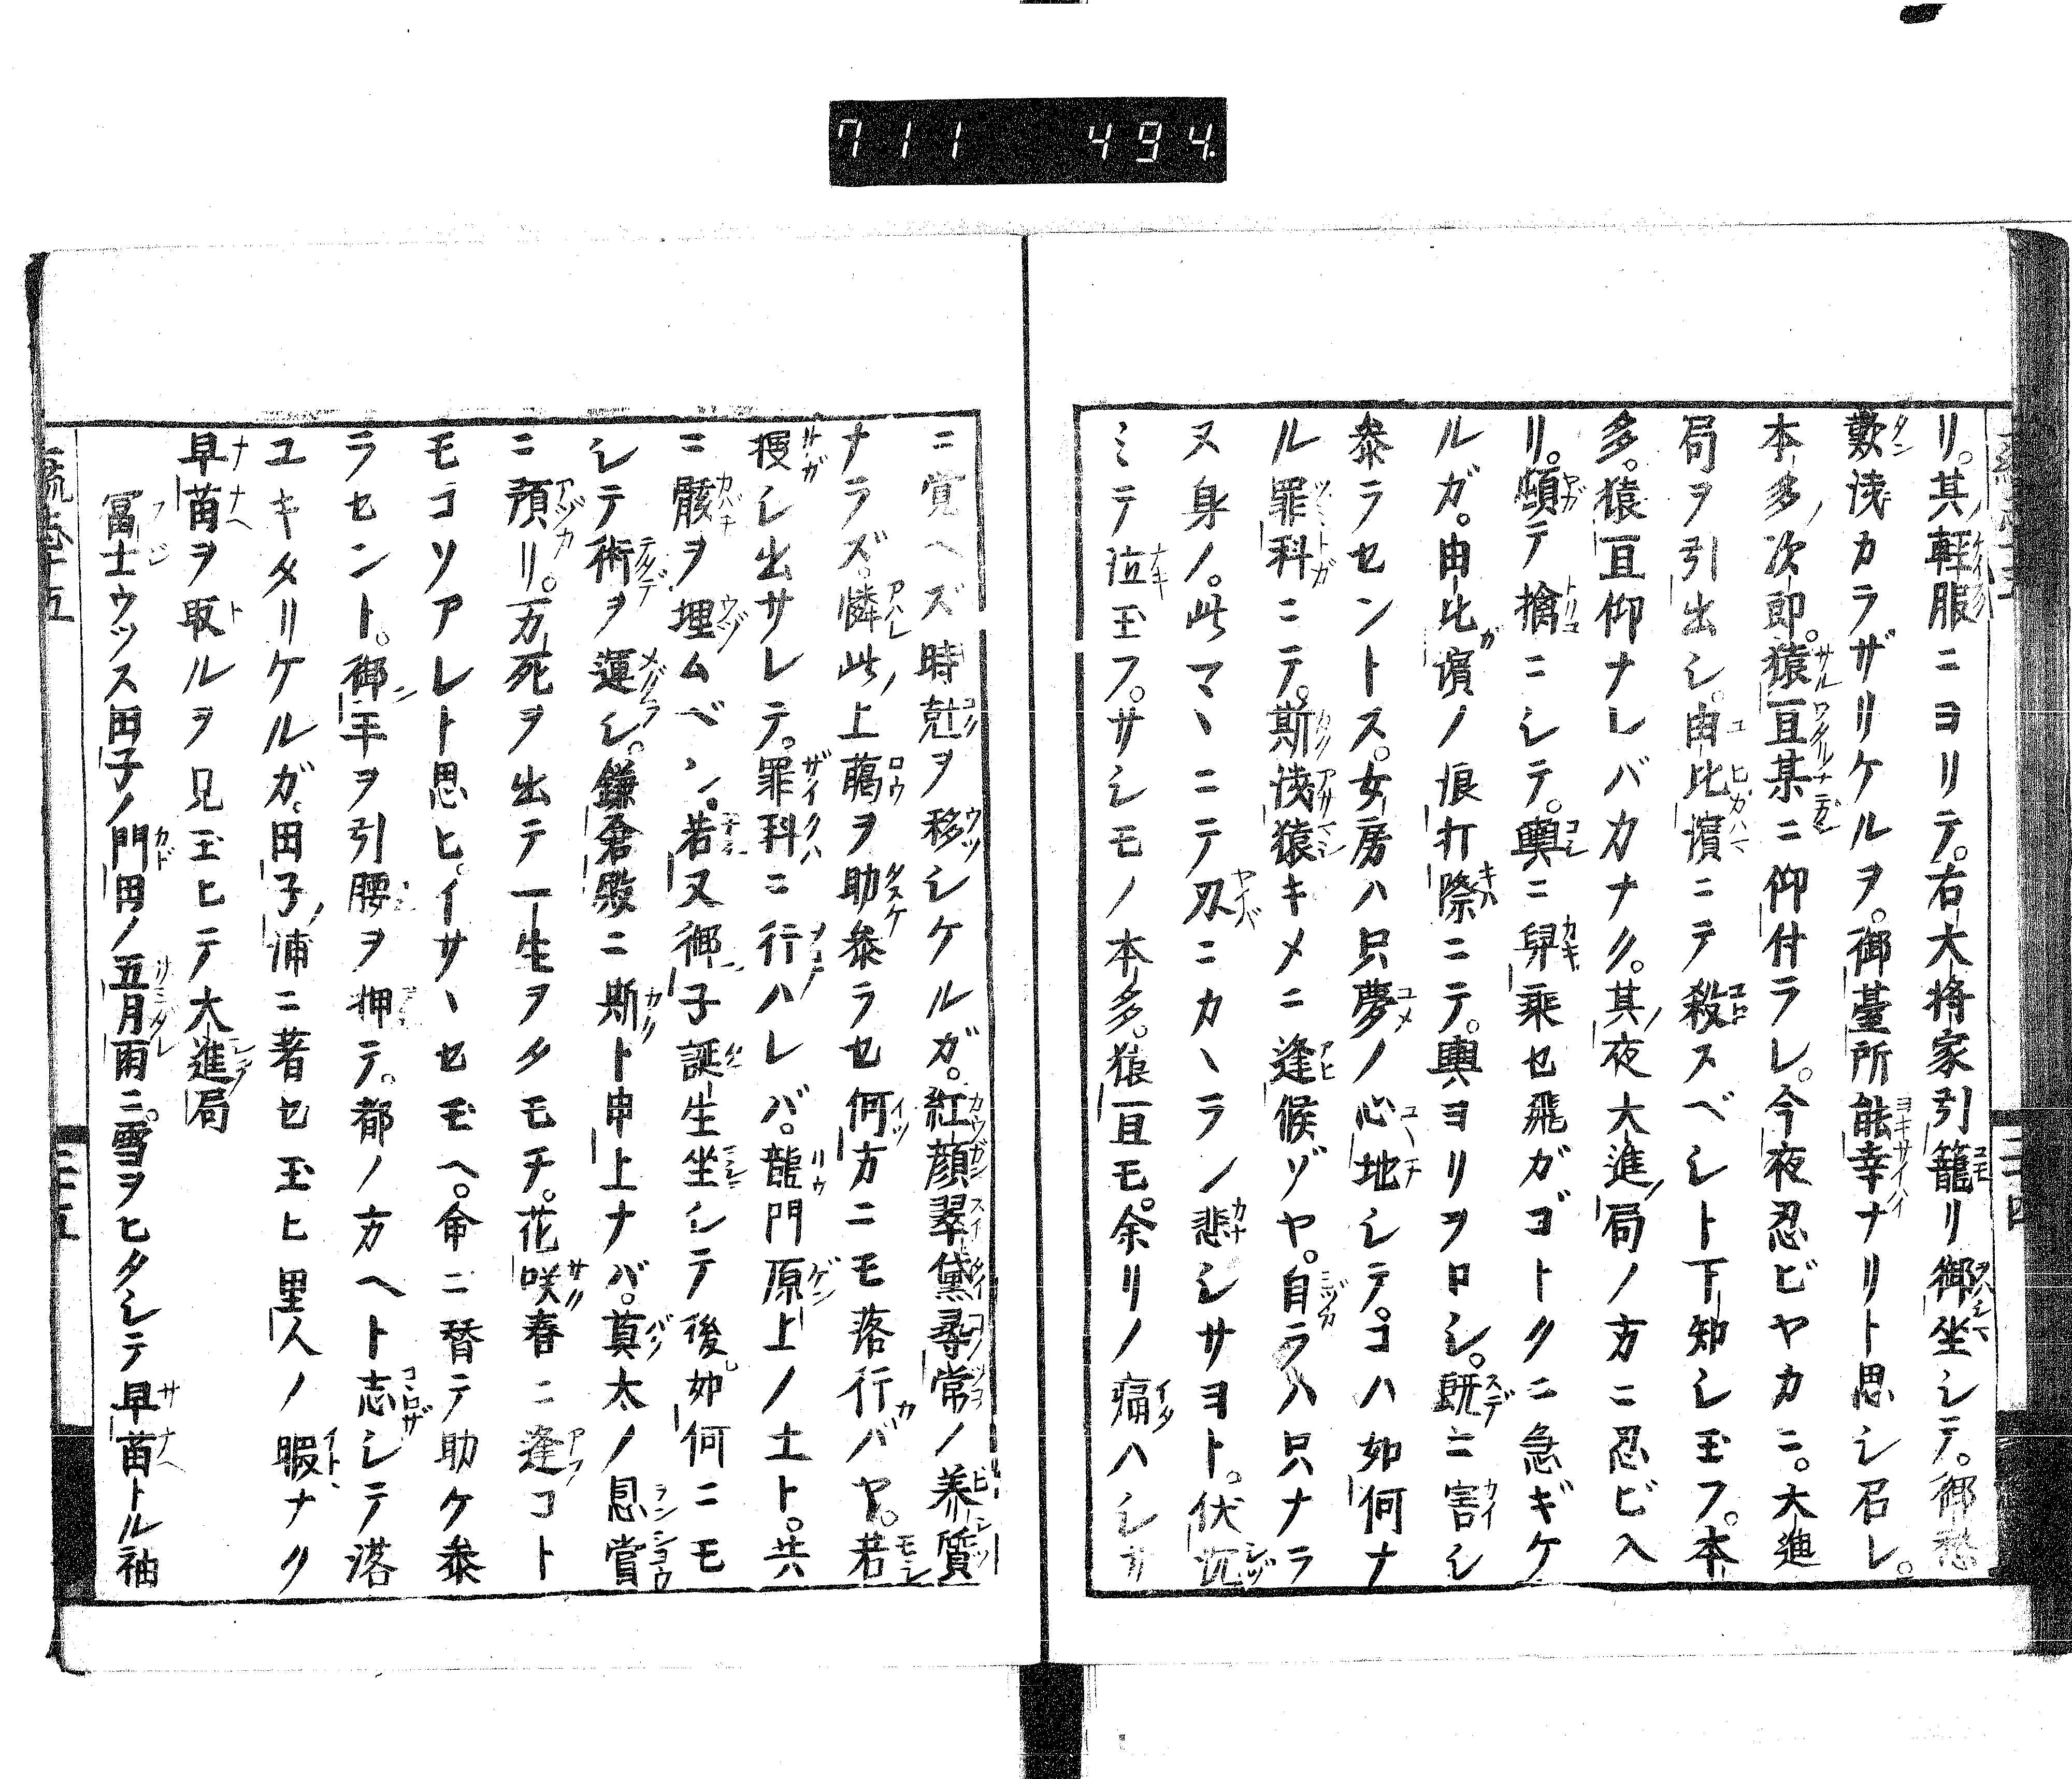 711 494
リ。其軽服ニヨリテ。右大将家引籠リ御坐シテ。御愁
歎浅カラザリケルヲ。御䑓所能幸ナリト思シ召レ。
本多次郎。猿亘某ニ仰付ラレ。今夜忍ビヤカニ。大進
局ヲ引出シ。由比濵ニテ殺スベシト下知シ玉フ。本
多。猿亘仰ナレバ力ナク。其夜大進局ノ方ニ忍ビ入
リ。頓テ擒ニシテ。輿ニ舁乗セ飛ガゴトクニ急ギケ
ルガ。由比濵ノ浪打際ニテ。輿ヨリヲロシ。既ニ害シ
参ラセントス。女房ハ只夢ノ心地シテ。コハ如何ナ
ル罪科ニテ。斯浅猿キメニ逢候ゾヤ。自ラハ只ナラ
ヌ身ノ。此マヽニテ刃ニカヽランノ悲シサヨト。伏沉
ミテ泣玉フ。サシモノ本多。猿亘モ。余リノ痛ハシサ
ニ覚ヘズ時尅ヲ移シケルガ。紅顔翠黛尋常ノ養質
ナラズ。憐此上﨟ヲ助参ラセ何方ニモ落行バヤ。若
捜シ出サレテ。罪科ニ行ハレバ。龍門原上ノ土ト。共
ニ骸ヲ埋ムベシ。若又御子誕生坐シテ後。如何ニモ
シテ術ヲ運シ。鎌倉殿ニ斯ト申上ナバ。莫太ノ恩賞
ニ預リ。万死ヲ出テ一生ヲタモチ。花咲春ニ逢コト
モコソアレト思ヒ。イサヽセモヘ。命ニ替テ助ケ参
ラセント。御手ヲ引腰ヲ押テ。都ノ方ヘト志シテ落
ユキタリケルガ。田子浦ニ著セ玉ヒ里人ノ暇ナク
早苗ヲ取ルヲ見玉ヒテ大進局
冨士ウツス田子ノ門田ノ五月雨ニ。雪ヲヒタシテ早苗トル袖